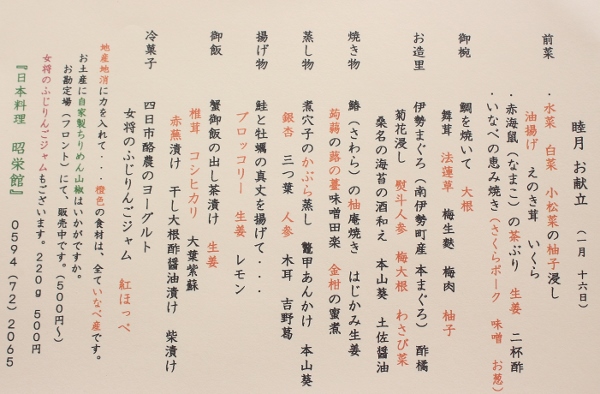 睦月 お献立 (一月 十六日)
前菜
・水菜 白菜 小松菜の柚子浸し
油揚げ えのき茸 いくら
・赤海鼠(なまこ)の茶ぶり 生姜 二杯酢
・いなべの恵み焼き(さくらポーク 味噌 お葱)
御椀
鯛を焼いて 大根
舞茸 法蓮草 梅生麩 梅肉 柚子
お造里
伊勢まぐろ(南伊勢町産 本まぐろ) 酢橘
菊花浸し 熨斗人参 梅大根 わさび菜
桑名の海苔の酒和え 本山葵 土佐醤油
焼き物
鰆(さわら)の柚庵焼き はじかみ生姜
蒟蒻の蕗の薹味噌田楽 金柑の蜜煮
蒸し物
煮穴子のかぶら蒸し 鼈甲あんかけ 本山葵
銀杏 三つ葉 人参 木耳 吉野葛
揚げ物
鮭と牡蠣の真丈を揚げて・・・
ブロッコリー 生姜 レモン
御飯
蟹御飯の出し茶漬け 生姜
椎茸 コシヒカリ 大葉紫蘇
赤蕪漬け 干し大根酢醤油漬け 柴漬け
冷菓子
四日市酪農のヨーグルト
女将のふじりんごジャム 紅ほっぺ
地産地消に力を入れて・・・橙色の食材は、全ていなべ産です。
お土産に自家製ちりめん山椒はいかがですか。
お勘定場(フロント)にて、販売中です。(500円~)
女将のふじりんごジャムもございます。220g 500円
『日本料理 昭栄館』 0594(72)2065